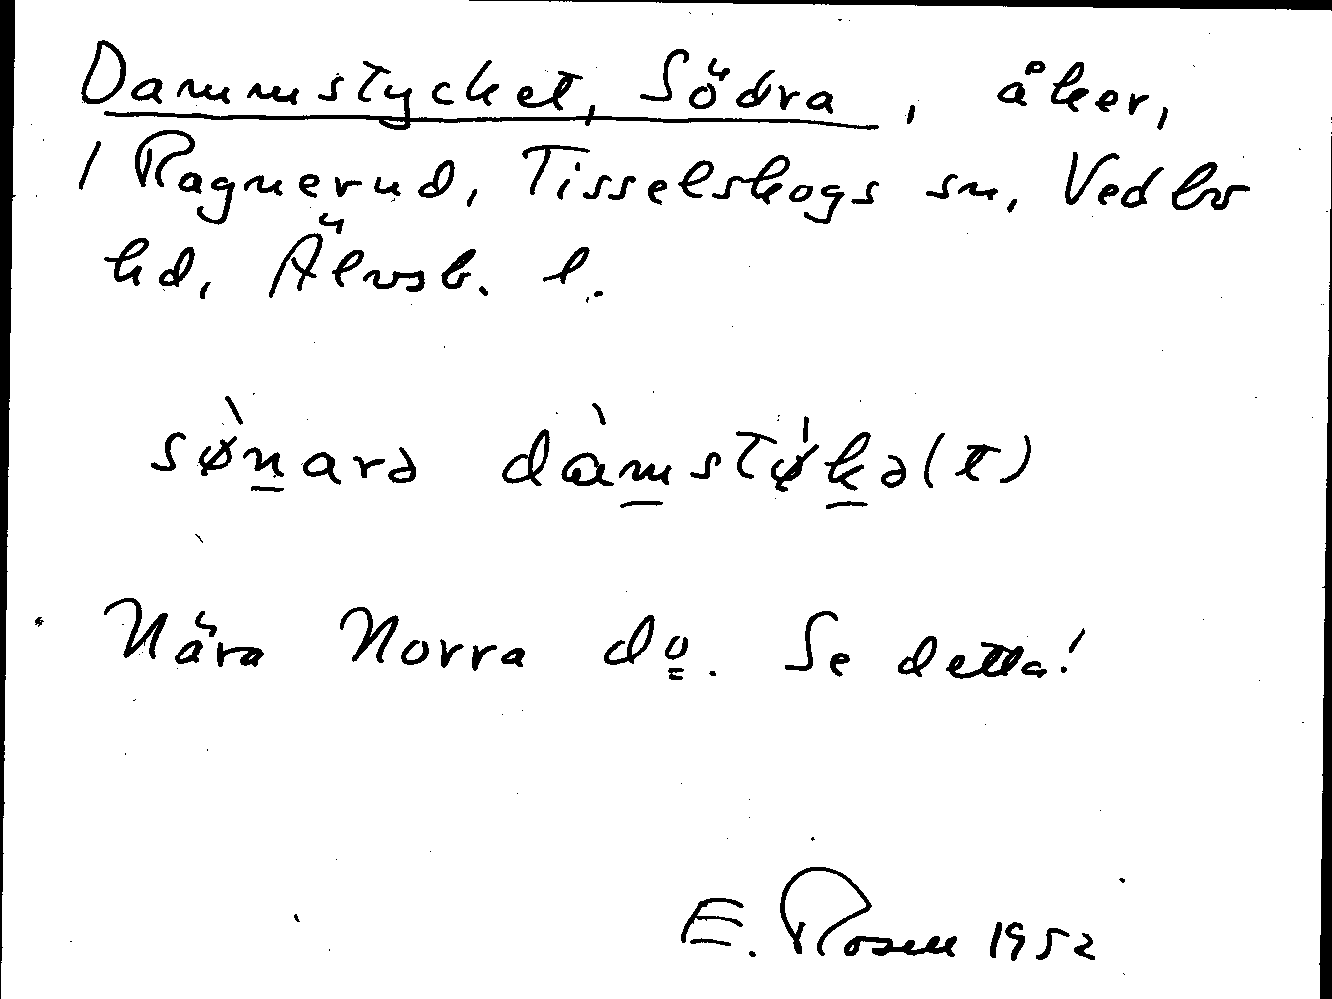 Dammstycket, Södra, åker,
1 Ragnerud, Tisselskogs sn, Vedbo
hd, Älvsb. l.
sø̀n̲arə dàm̲støk̲ə(t)
Nära Norra do. Se detta!
E. Rosell 1952